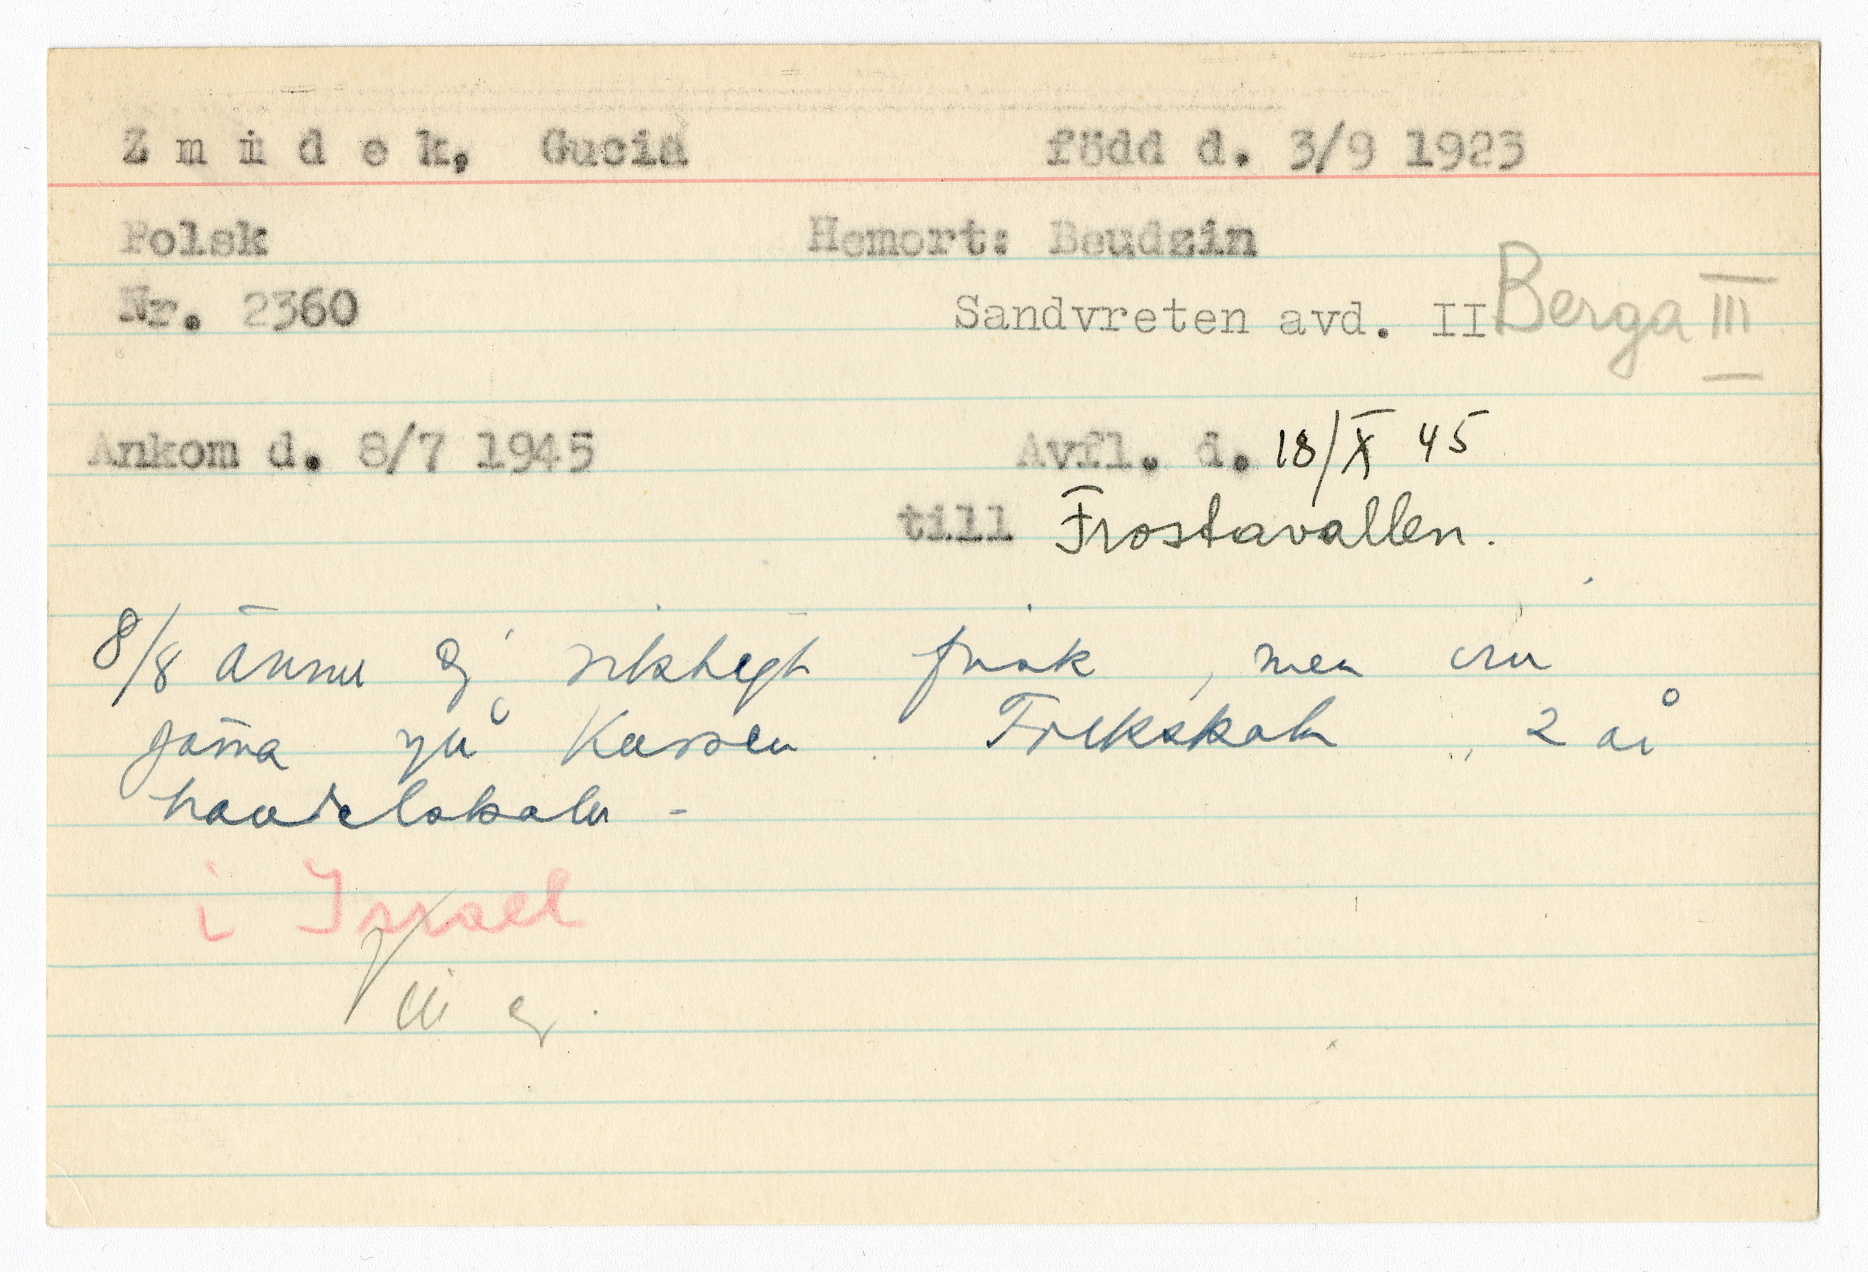 Zmudek, Gucia född d. 3/9 1923
Polsk Hemort: Beudzin
Nr. 2360 Sandvreten avd. II Berga III
Ankom d. 8/7 1945 Avfl. d. 18/X 45
till Frostavallen.
8/8 ännu ej riktigt frisk, men vill
gärna gå kursen. Folkskola, 2 år
handelskola -
i Israel